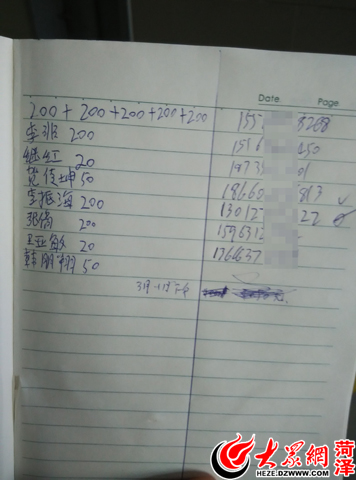 Date Page
200+200+200+200+200 155 3268
李班 200 1516 450
继红 20 1773 01
50 18660 813
李振海 200 13012 22
郭倩 200 1596312
王亚敏 20 1766637
韩朋翔 50
大众網 菏泽
HEZE.DZWWW.COM